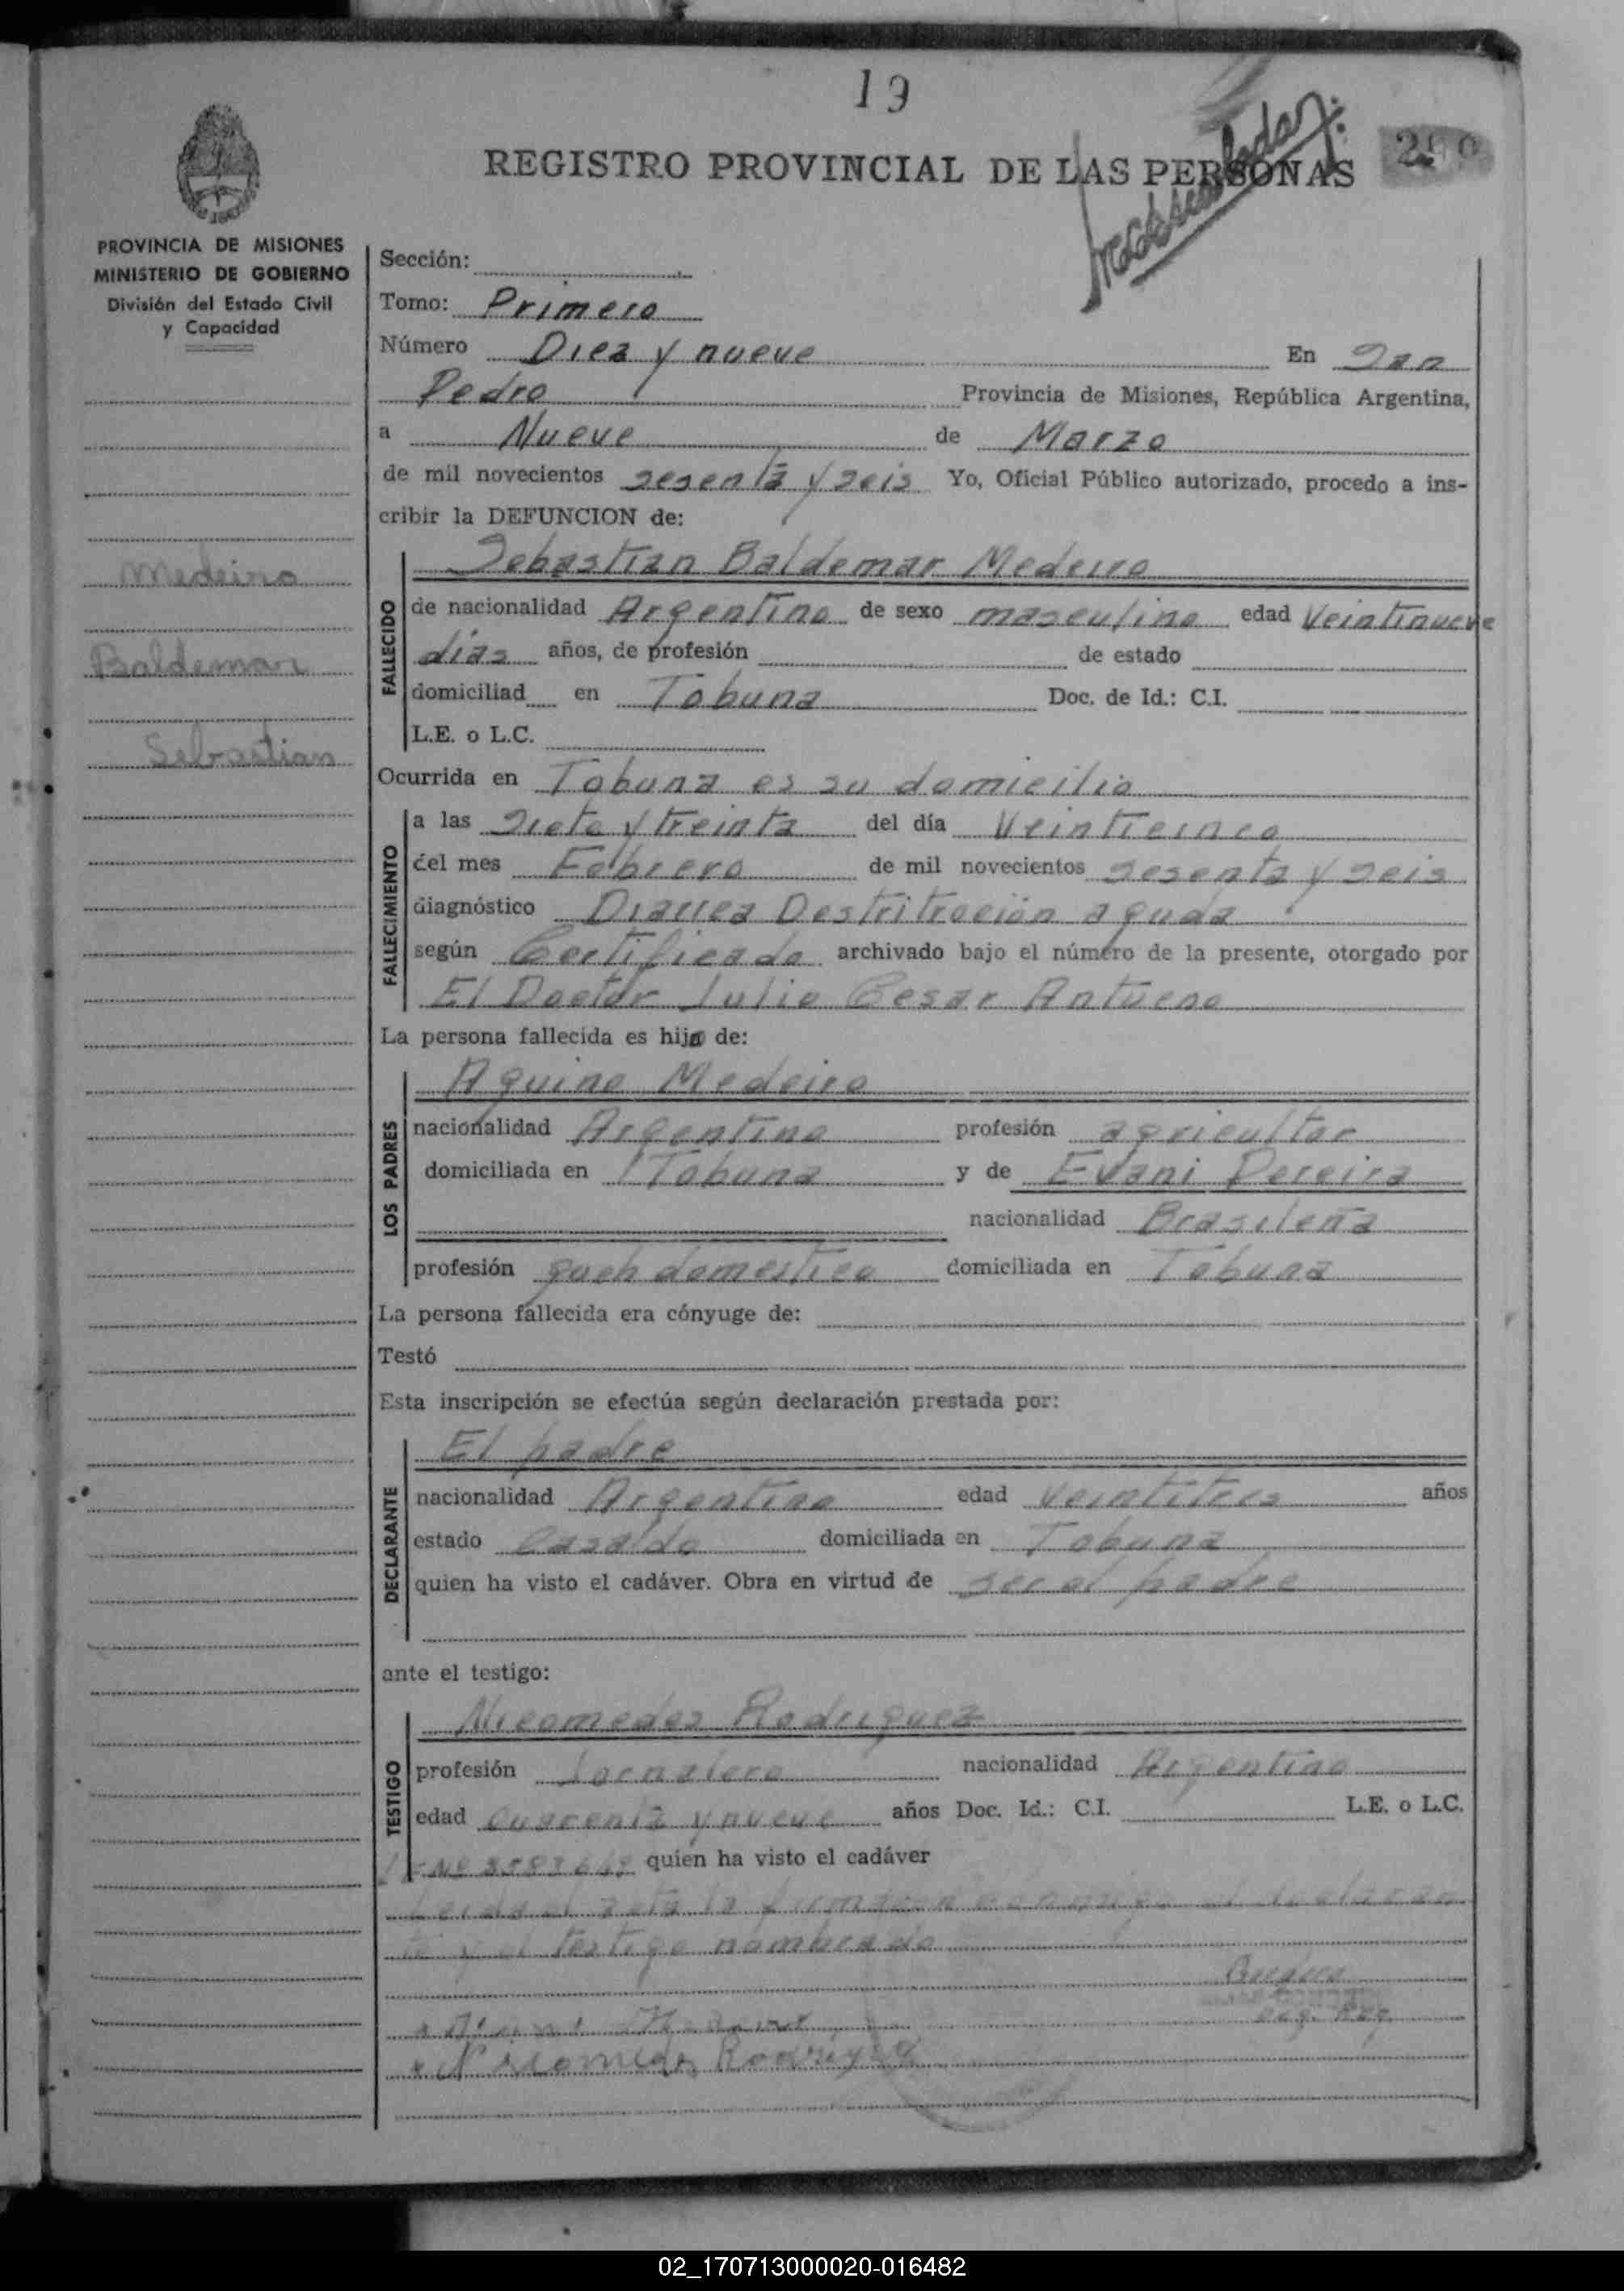 19
REGISTRO PROVINCIAL DE LAS PERSONAS
PROVINCIA DE MISIONES
MINISTERIO DE GOBIERNO
División del Estado Civil
y Capacidad
Medeiro
Baldemar
Sebastian
Sección:
Tomo: Primero
Número Diez y nueve En San
Pedro Provincia de Misiones, República Argentina,
a Nueve de Marzo
de mil novecientos sesenta y seis Yo, Oficial Público autorizado, procedo a ins-
cribir la DEFUNCION de:
FALLECIDO
Sebastian Baldemar Medeiro
de nacionalidad Argentino de sexo masculino edad Veintinueve
dias años, de profesión de estado
domiciliad en Tobuna Doc. de Id.: C.I.
L.E. o L.C.
Ocurrida en Tobuna es su domicilio
FALLECIMIENTO
a las Siete y treinta del día Veinticinco
del mes Febrero de mil novecientos sesenta y seis
diagnóstico Diarrea Destritroción aguda
según Certificado archivado bajo el número de la presente, otorgado por
El Doctor Julio Cesar Antueno
La persona fallecida es hijo de:
LOS PADRES
Aquino Medeiro
nacionalidad Argentino profesión agricultor
domiciliada en Tobuna y de Evani Pereira
nacionalidad Brasileña
profesión queh domestico domiciliada en Tobuna
La persona fallecida era cónyuge de:
Testó
Esta inscripción se efectúa según declaración prestada por:
DECLARANTE
El padre
nacionalidad Argentino edad Veintitres años
estado Casado domiciliada en Tobuna
quien ha visto el cadáver. Obra en virtud de ser el padre
ante el testigo:
TESTIGO
Nicomedes Rodriguez
profesión Jornalero nacionalidad Argentino
edad cuarenta y nueve años Doc. Id.: C.I. L.E. o L.C.
quien ha visto el cadáver
Leida el acta la firman conmigo el declaran
te y el testigo nombrado
Nicomedes Rodriguez
02_170713000020-016482